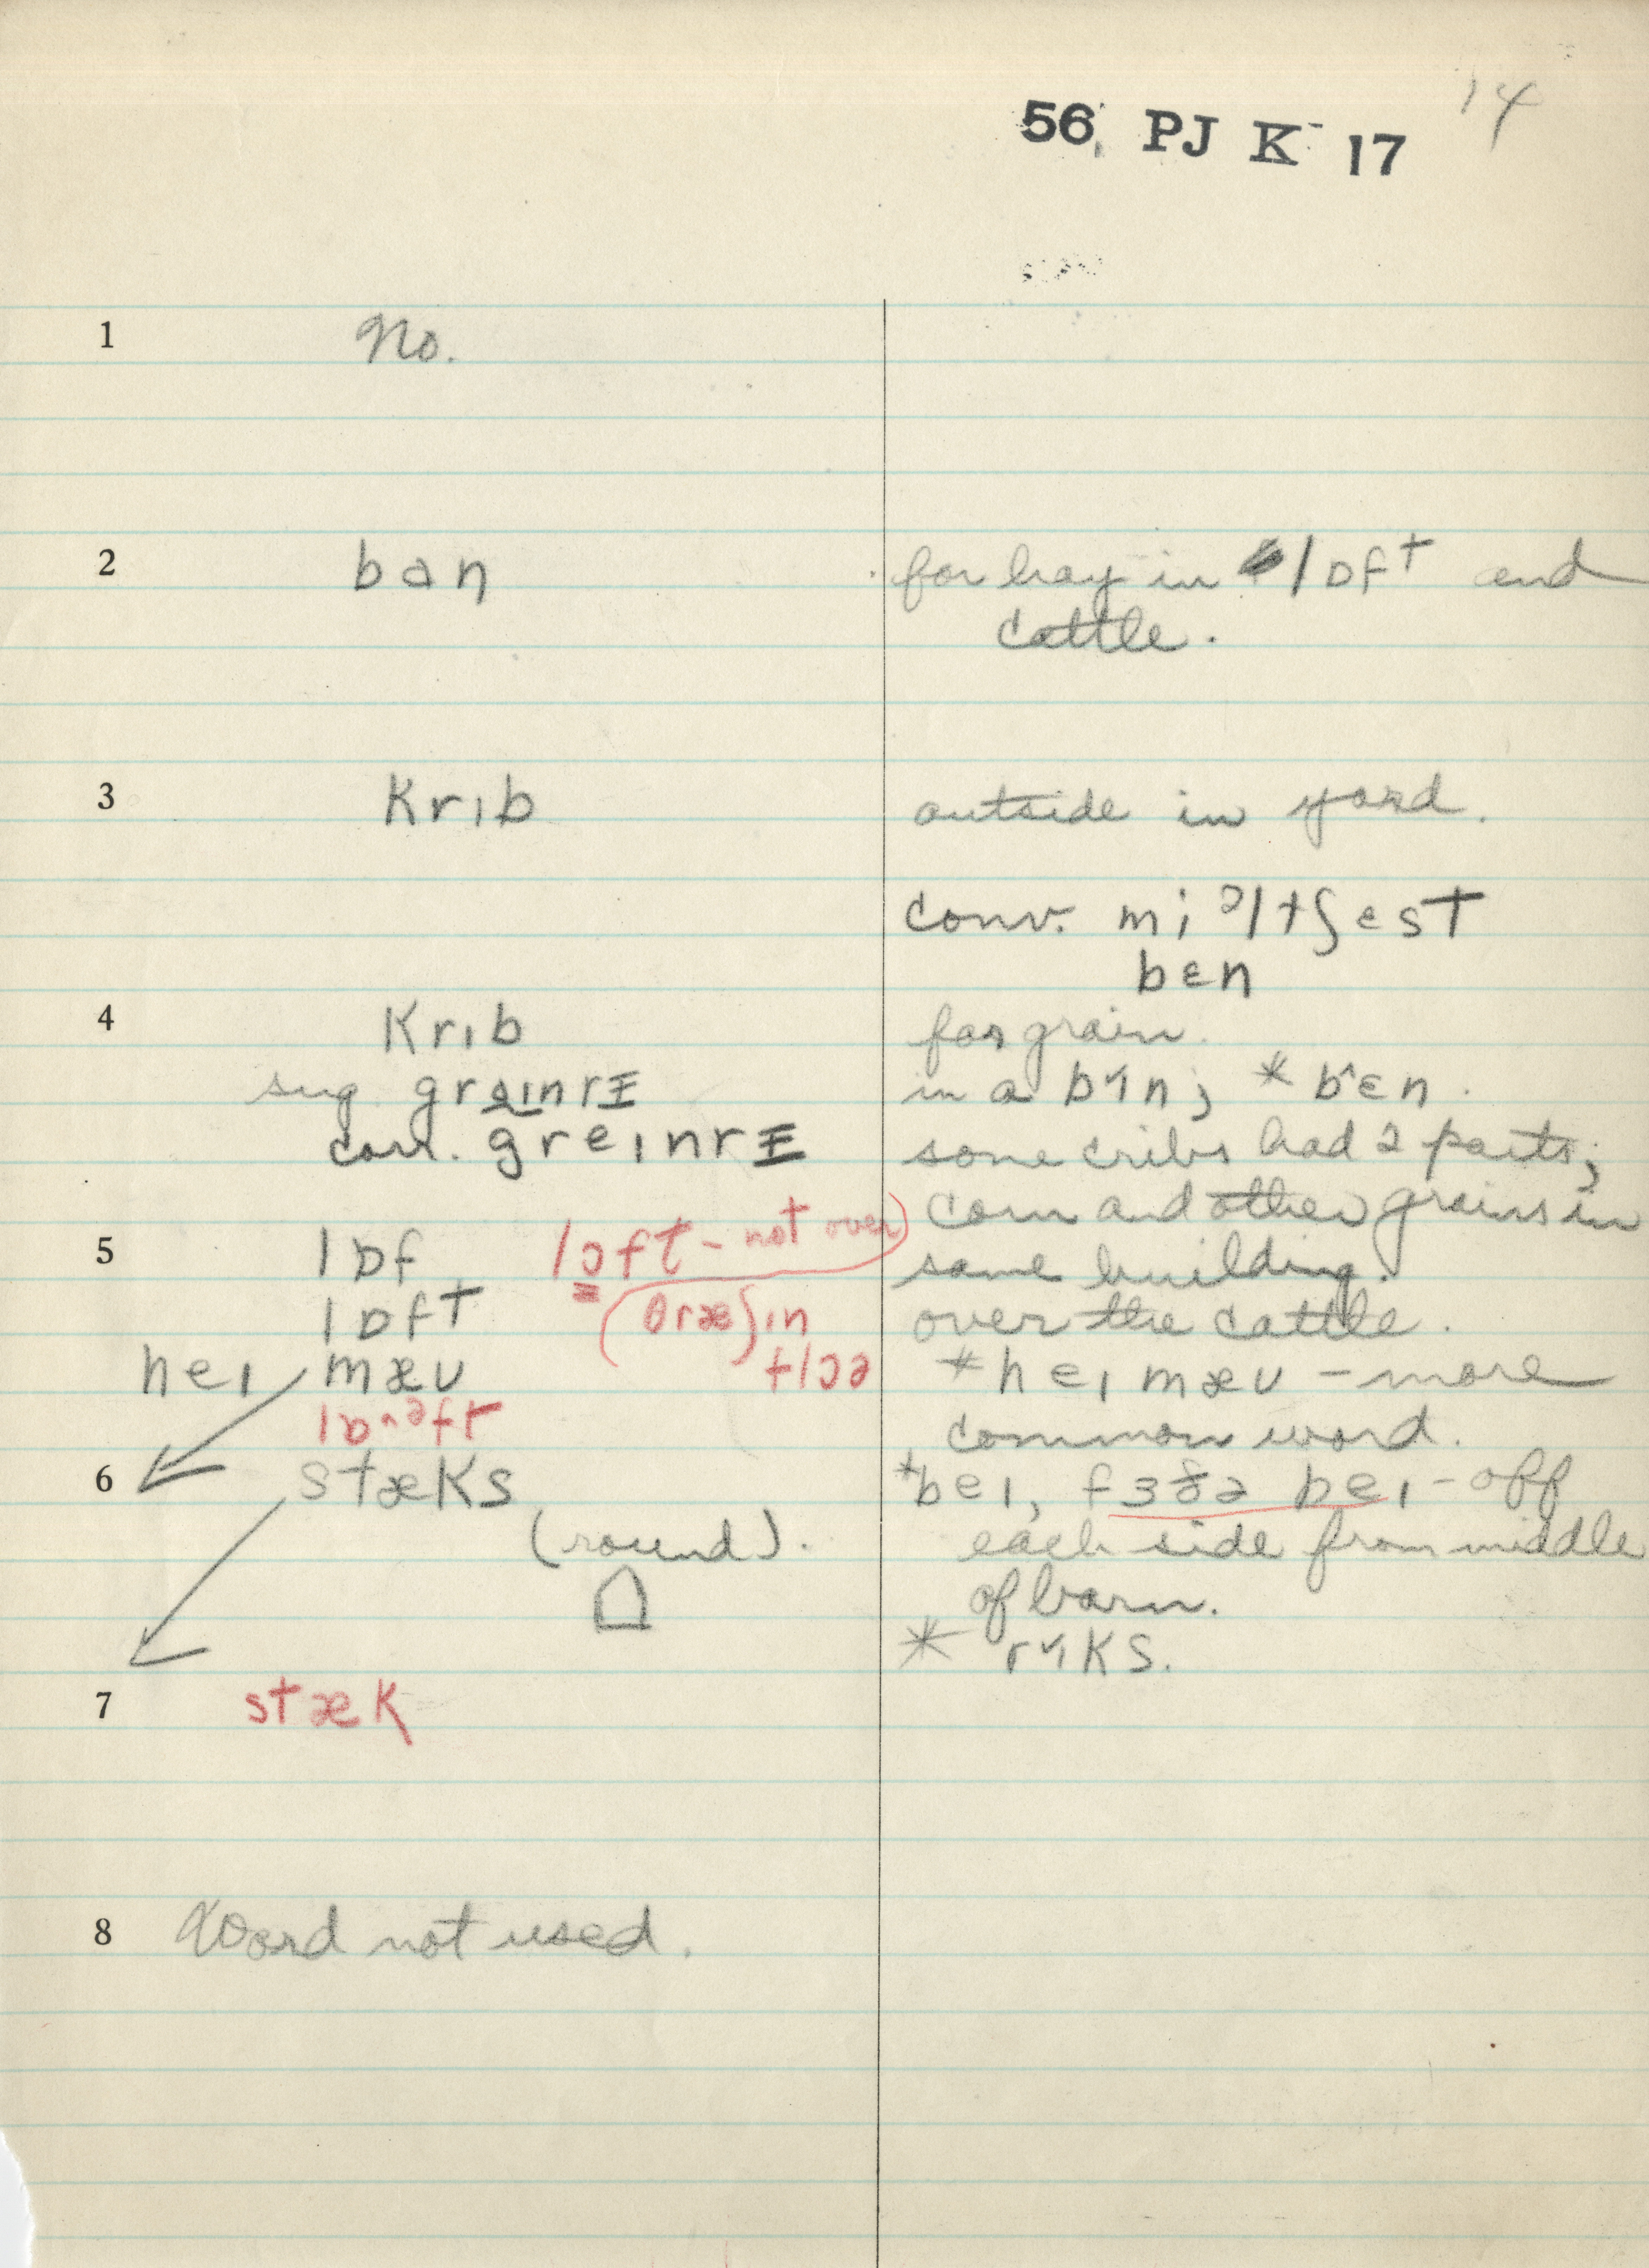 14
56 PJ K 17
1 No.
2 ban for hay in lɒft and
cattle.
3 Krɪb outside in yard.
conv. mɪəltʃɛst
bɛn
4 Krɪb for grain.
sug. in a bɪn; * bɛn.
corr. greɪnrɪ some cribs had 2 parts;
corn and other grains in
same building.
5 lɒf lɔft - not over
lɒft (θræ)ɪn over the cattle.
heɪ mæʊ * heɪ mæʊ - more
common word.
6 stæKs * beɪ, fɜðə beɪ - off
(round). each side from middle
of barn.
* rɪKs.
7 stæK
8 Word not used.